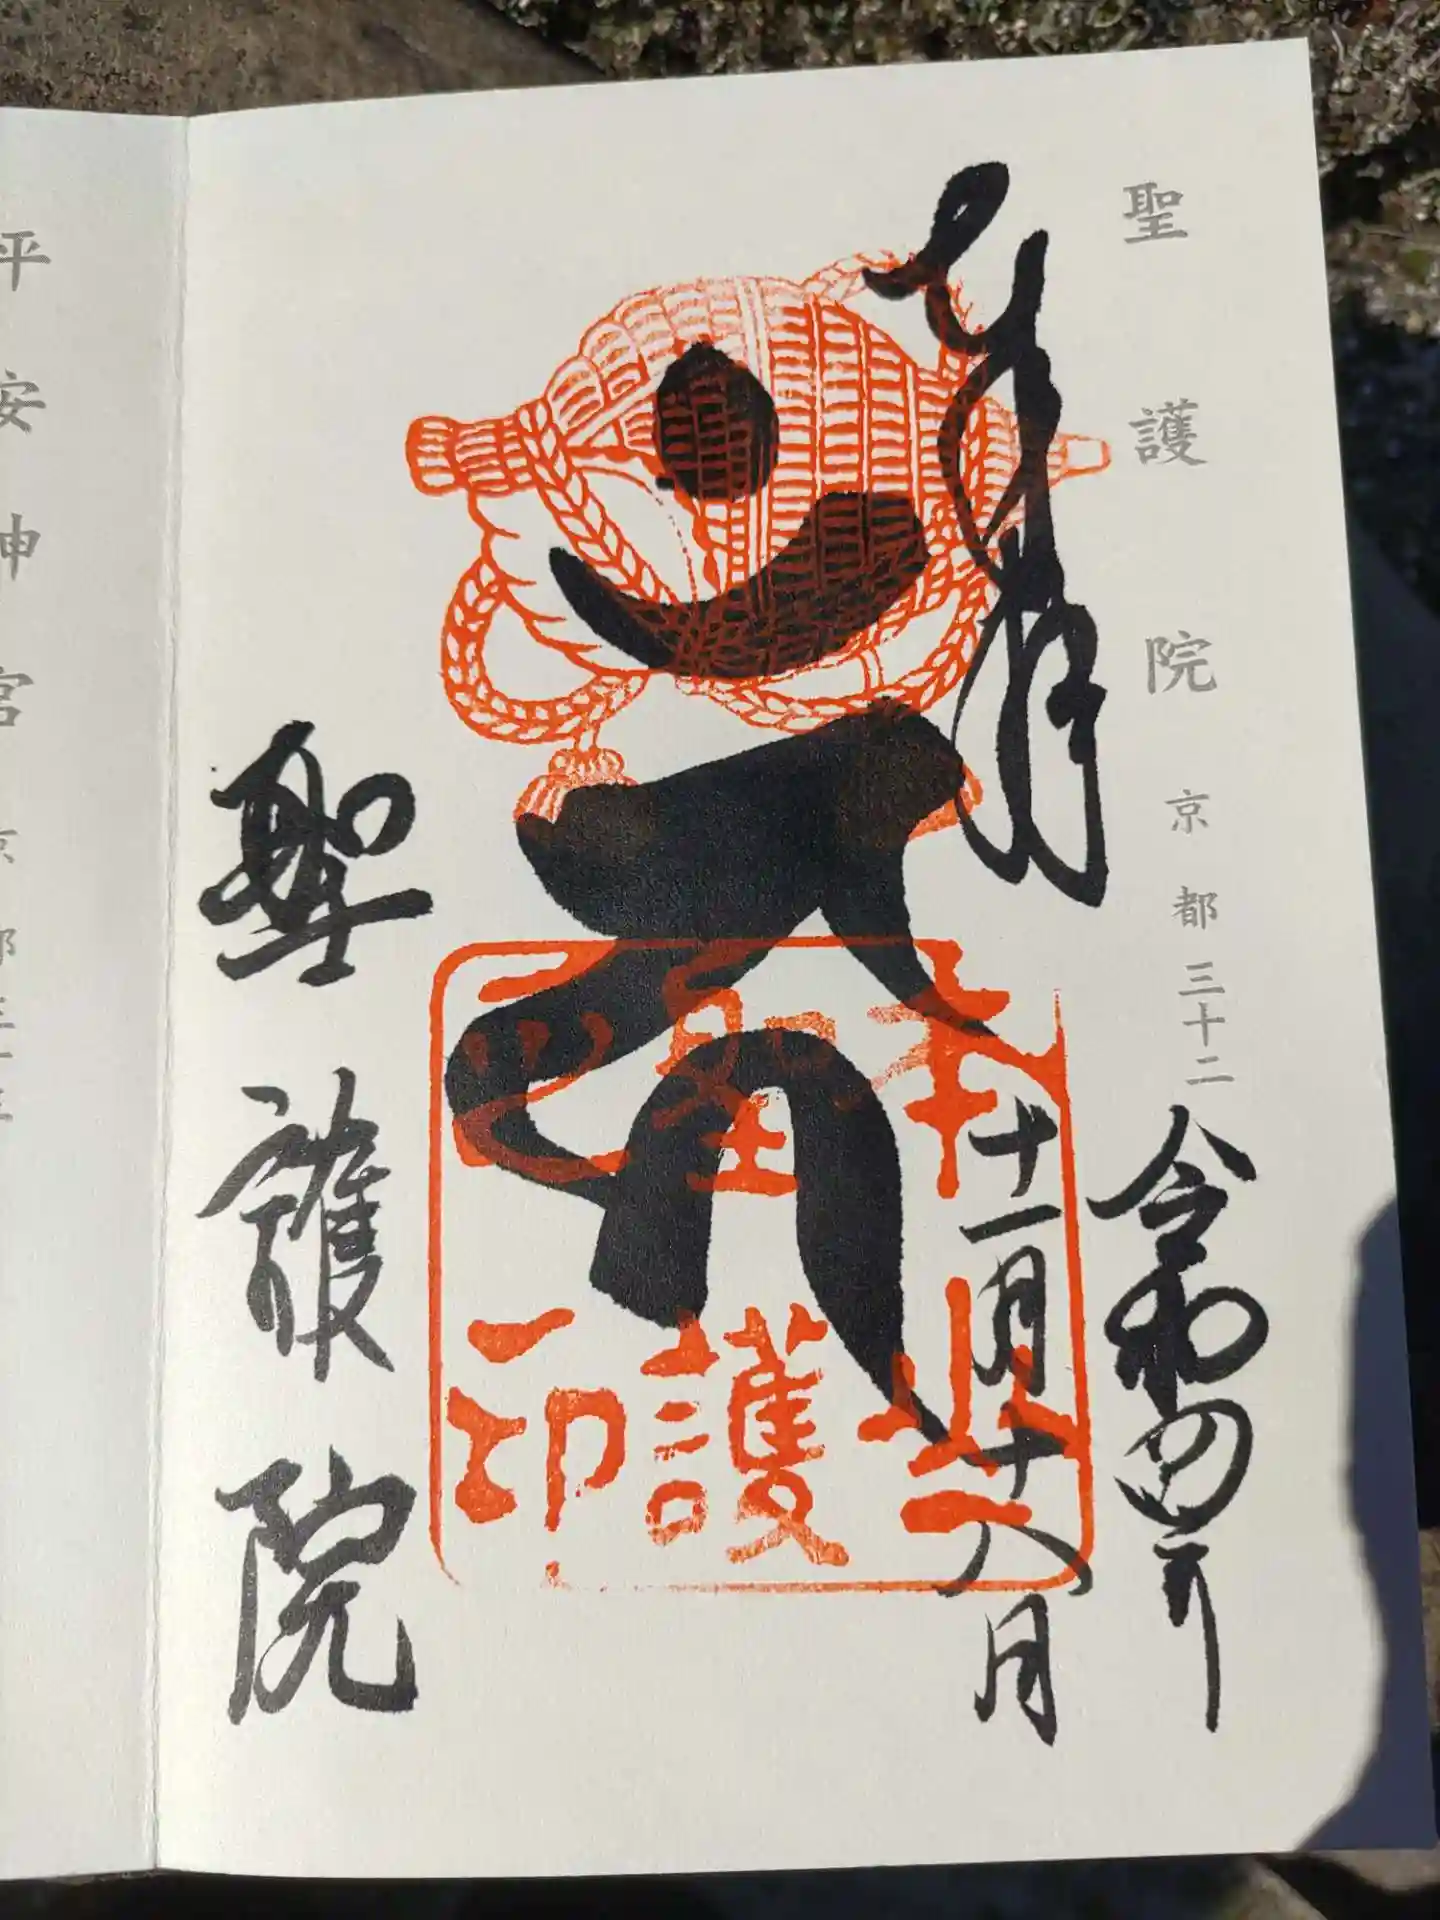 聖護院 京都三十二
奉拝
令和四年
十一月十八日
聖護院
本山
聖護
印
平安神宮 京都三十三